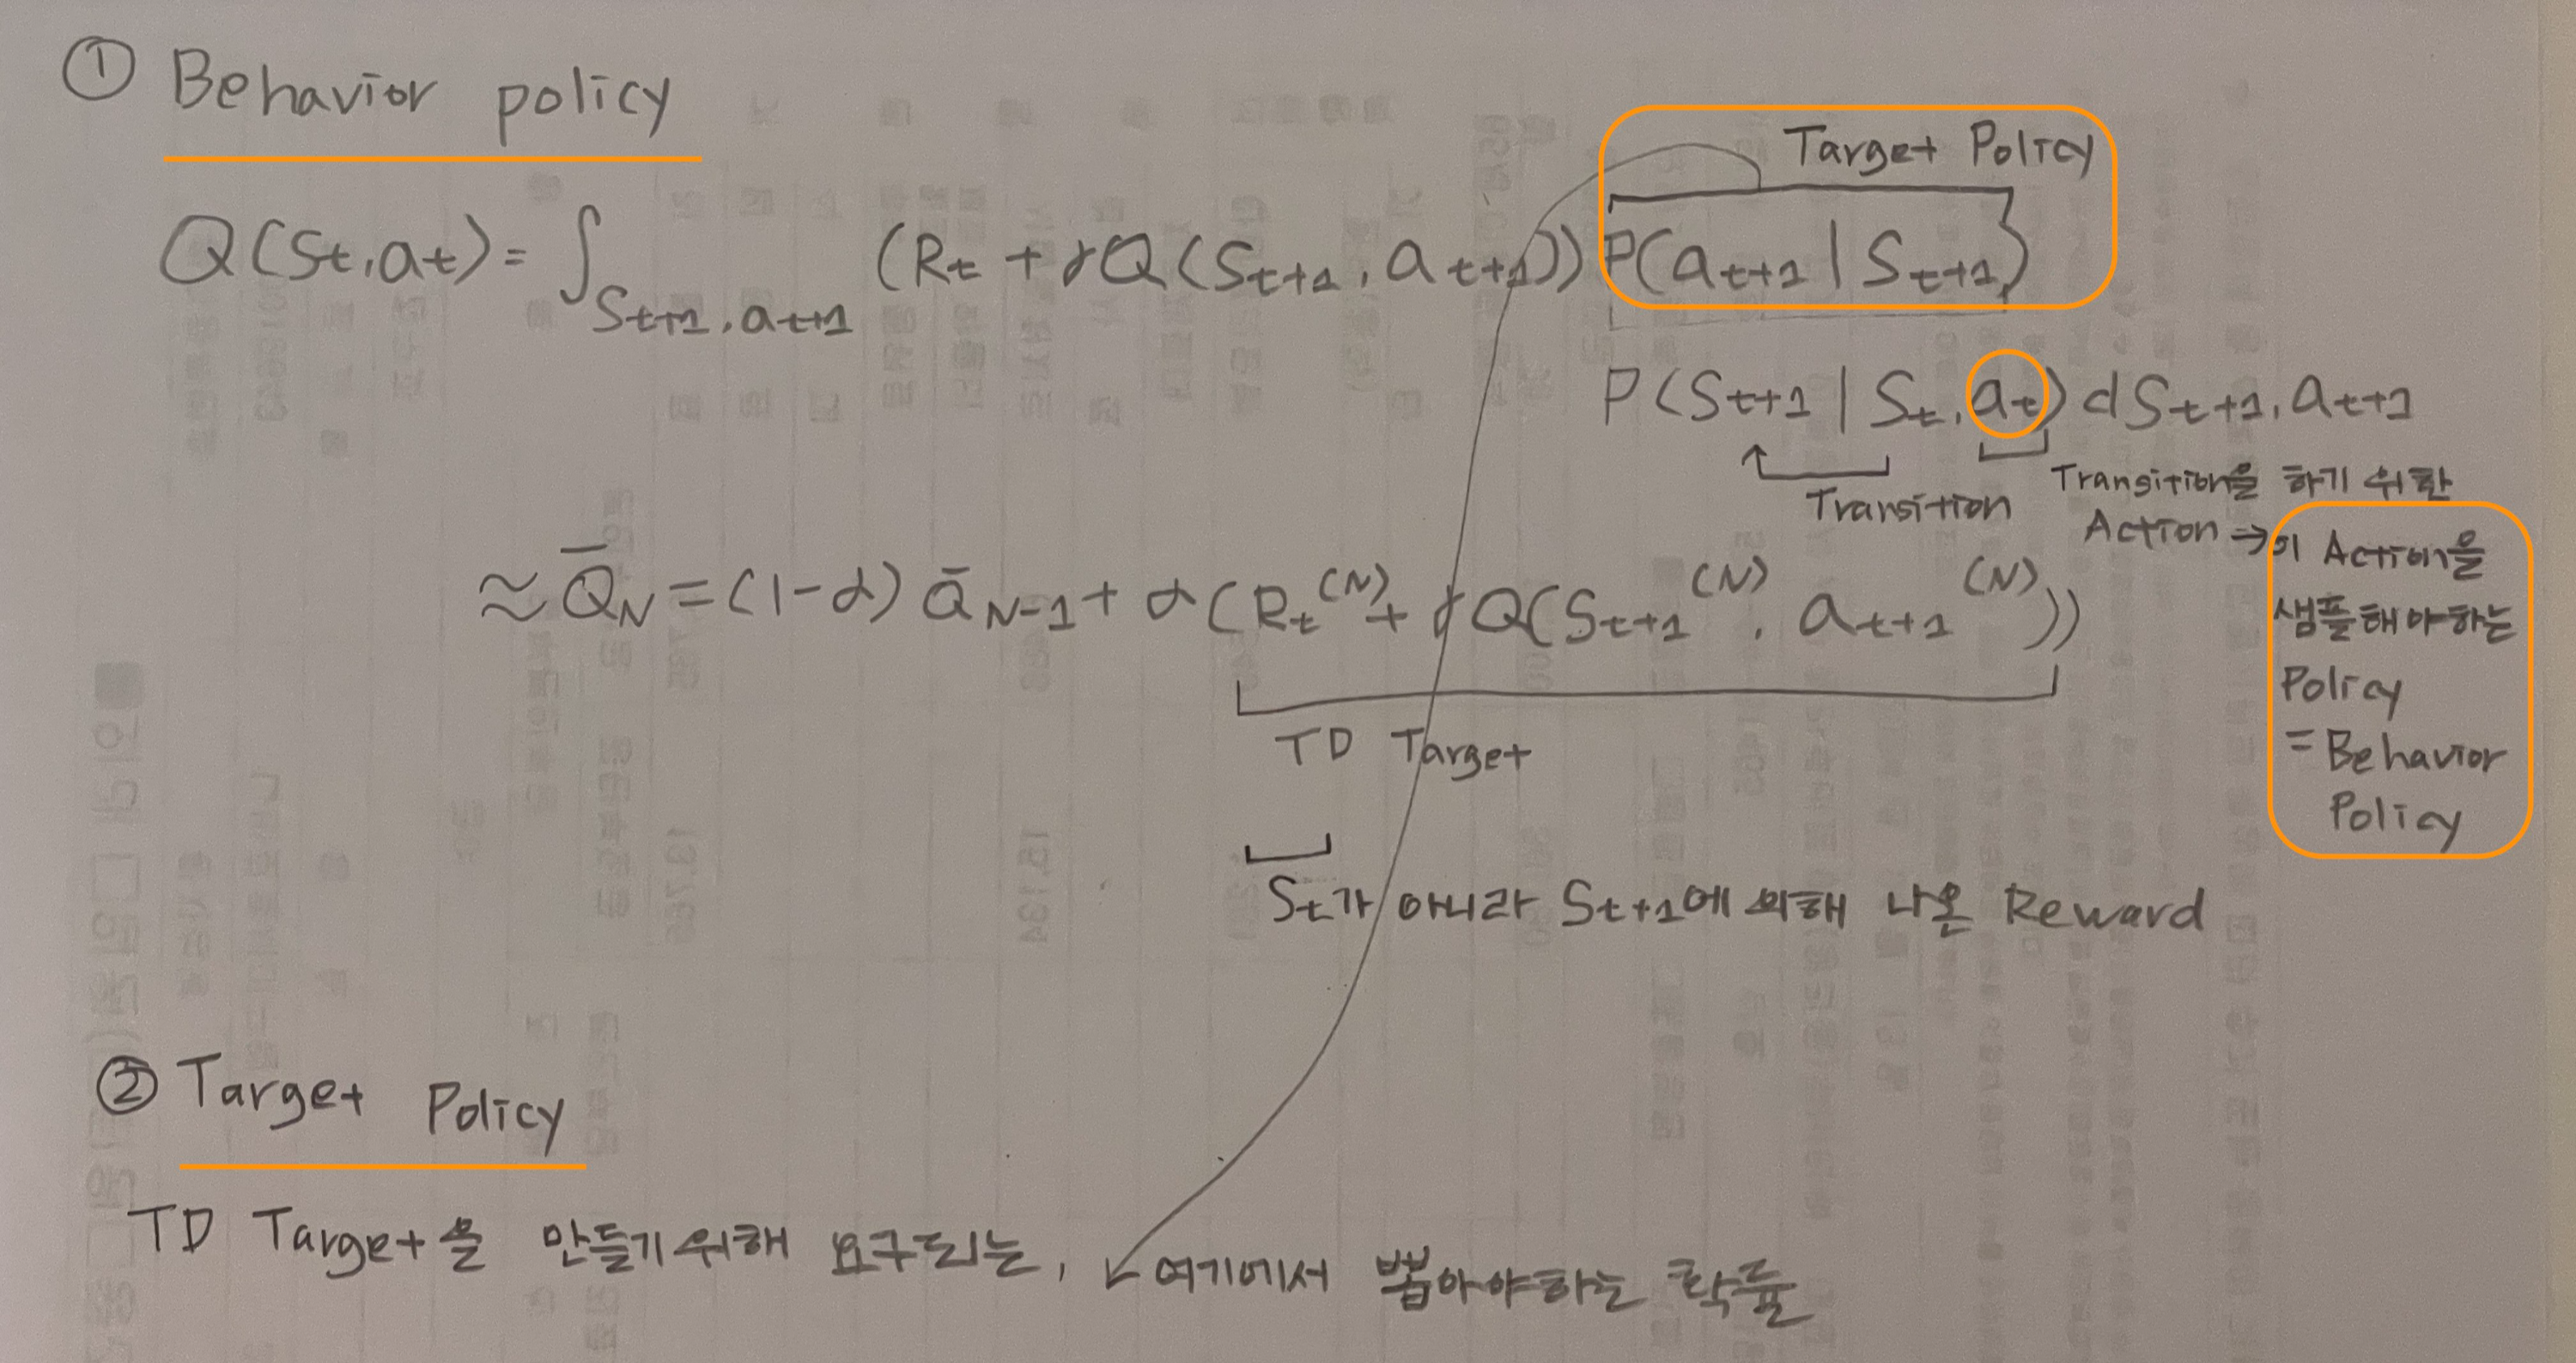 ① Behavior policy
Target Policy
Q(St,at)= ∫St+1,at+1 (Rt + γQ(St+1, at+1))P(at+1|St+1)
P(St+1|St,at)dSt+1,at+1
Transition
Transition을 하기 위한
Action ⇒ 이 Action을
샘플해야하는
Policy
= Behavior
Policy
≈ Q̄N = (1-α)Q̄N-1 + α(Rt(N) + γQ(St+1(N), at+1(N)))
TD Target
St가 아니라 St+1에 의해 나온 Reward
② Target Policy
TD Target을 만들기 위해 요구되는, ↙ 여기에서 뽑아야하는 확률